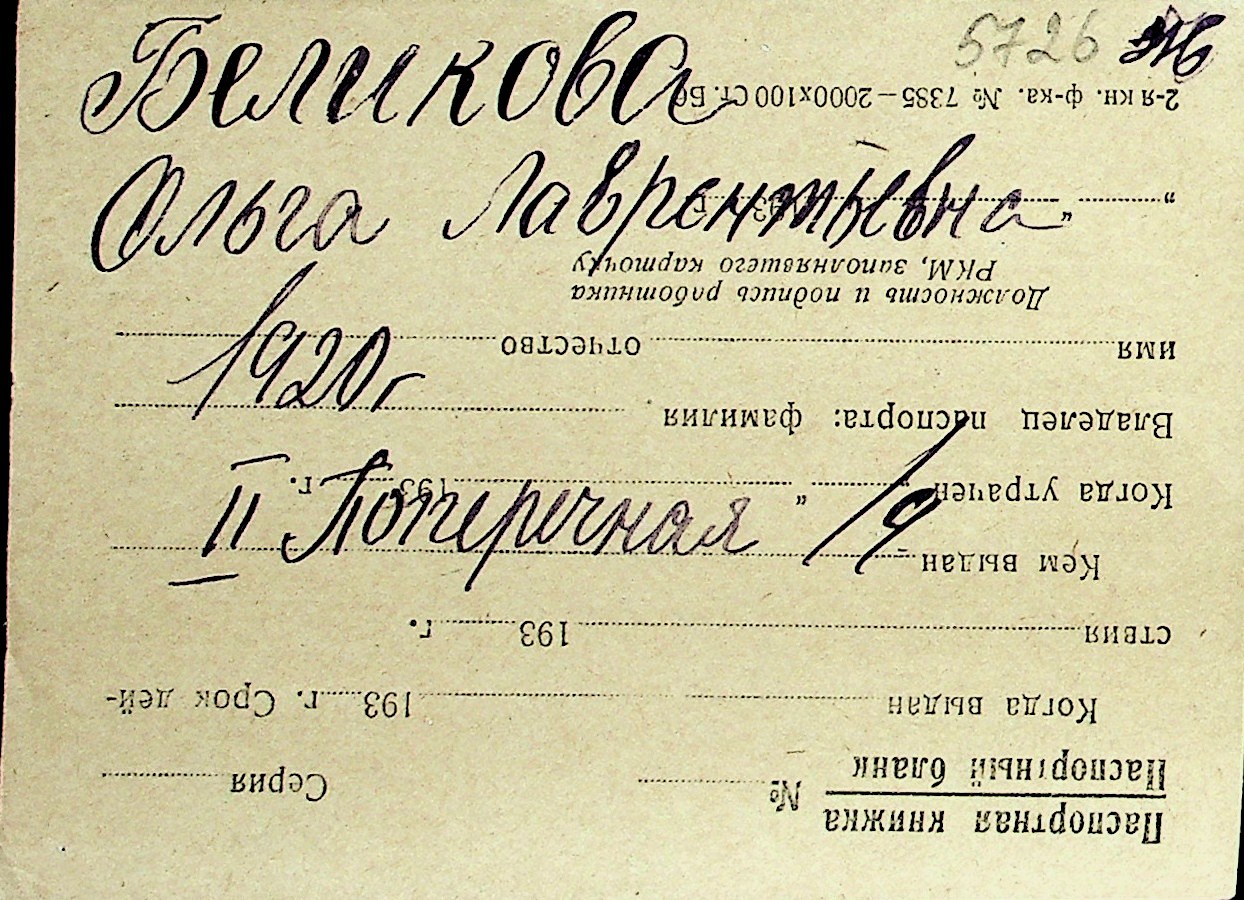 5726
Беликова
Ольга Лаврентьевна
1920 г
II Поперечная 19
Паспортная книжка
Паспортный бланк
№ Серия
Когда выдан 193 г. Срок дей-
ствия 193 г.
Кем выдан
Когда утрачен „ “ 193 г.
Владелец паспорта: фамилия
имя отчество
Должность и подпись работника
РКМ, заполнявшего карточку
„ “ 193 г.
2-я кн. ф-ка. № 7385—2000х100 Ст. Бб